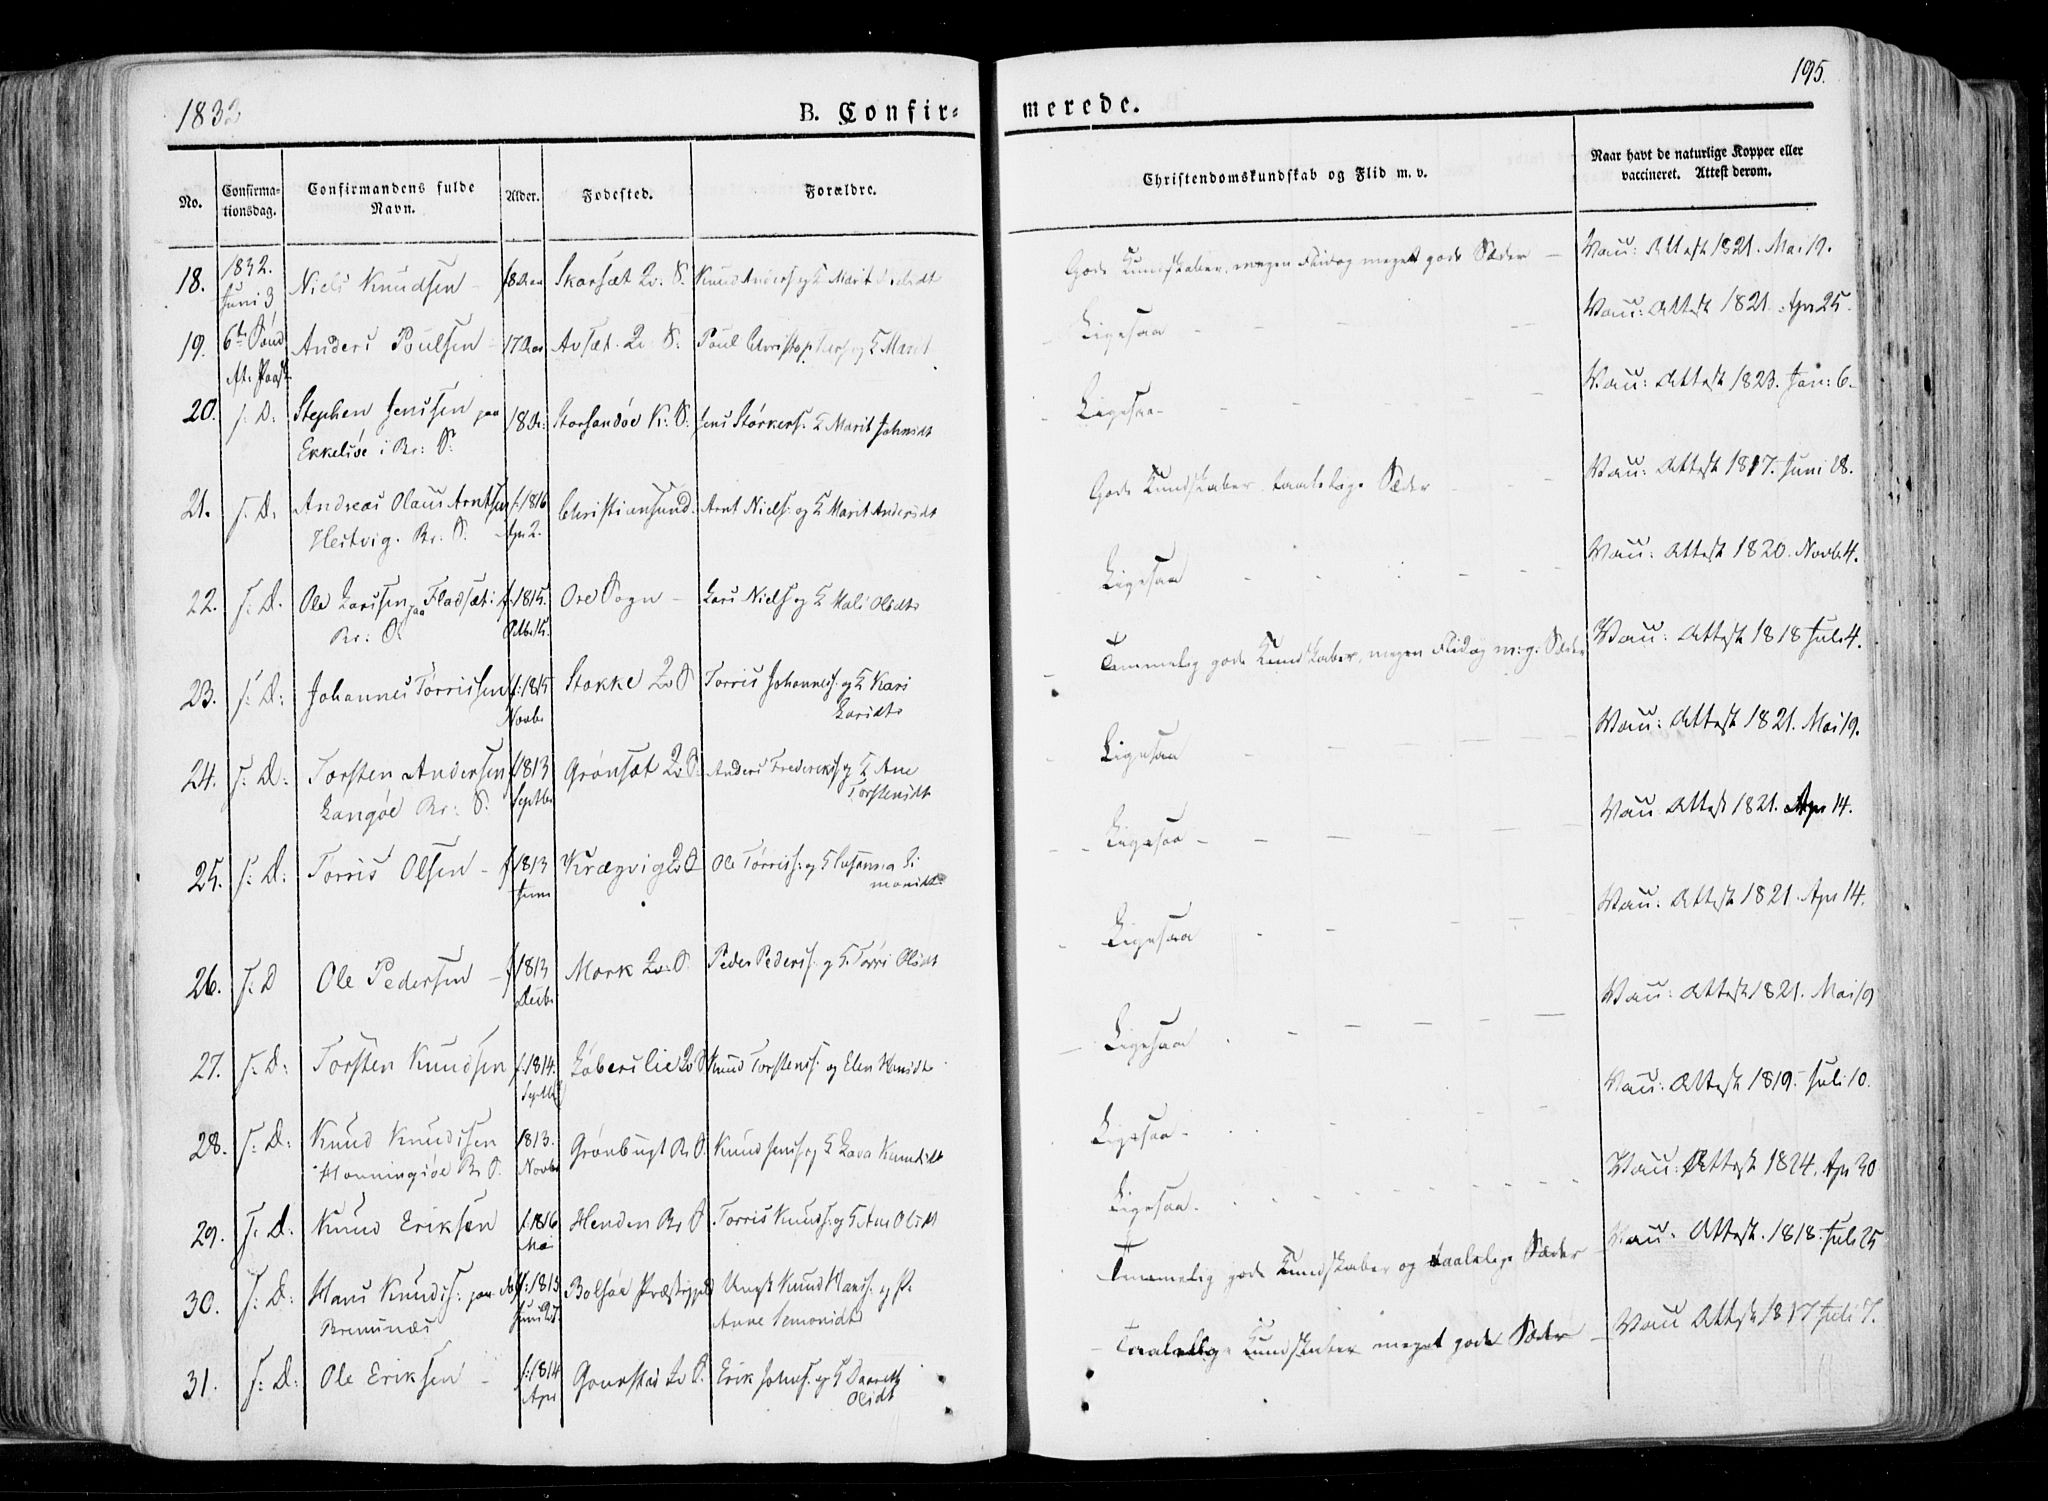 1832
B. Confirmerede.
195.
No.
Confirmationsdag.
Confirmandens fulde Navn.
Alder.
Fødested.
Forældre.
Christendomskundskab og Flid m. v.
Naar havt de naturlige Kopper eller vaccineret. Attest derom.
18. 1832. Juni 3 Niels Knudsen 18 Aar Skarsæt Qv: S. Knud Anders: og H Marit Gode Kundskaber, megen Flid og meget gode Sæder Vacc: Attest 1821. Mai 19.
19. 6te Sønd. Aft. Paask Anders Poulsen 17 Aar Avsæt Qv: S. Poul Christophers og H Marit Ligesaa Vacc: Attest 1821. Apr 25.
20. s: D: Stephen Jenssen paa Ekkelsøe i Br: S: 18 A: Storsandøe K: S. Jens Størkers. H Marit Johnsdt Ligesaa Vacc: Attest 1823. Jan: 6.
21. s. D. Andreas Olaus Arntsen Hestvig. Br: S. f. 1816 Apr 2. Christiansund. Arnt Niels: og H Marit Andersdt Gode Kundskaber taalelige Sæder Vacc: Attest 1817. Juni 28.
22. s. D. Ole Larssen paa Fladsæt: Br: S. f. 1815. Ore Sogn Lars Niels og H Mali Olsdt Ligesaa Vacc: Attest 1820. Novb 4.
23. s. D: Johannes Tørrissen f: 1815 Novbr Stokke Qv S Torris Johanness. og H Kari Larsdt Temmelig gode Kundskaber, megen Flid og m: g: Sæder Vacc: Attest 1818 Juli 4.
24. s. D: Torsten Andersen Langøe Br: S. f 1813 Septbr Grønsæt Qv S. Anders Fredericks og H Ane Torstensdt Ligesaa Vacc: Attest 1821. Mai 19.
25. s: D: Torris Olsen f 1813 Juni Krægvig Qv S Ole Tørriss: og H Susanna Simonsdt Ligesaa Vacc: Attest 1821. Apr 14.
26. s: D Ole Pedersen f 1813 Decbr Mork Qv: S. Peder Peders: og H. Torri Olsdt Ligesaa Vacc: Attest 1821. Apr 14.
27. s. D: Torsten Knudsen f. 1814. Septbr Løberslie Qv S Knud Torstenss: og Elen Hansdt Ligesaa Vacc: Attest 1821. Mai 19
28. s: D: Knud Knudssen Honningsøe Br S. 1813. Novbr Grønbugt Br S. Knud Jens og H Lava Knudsdt Ligesaa. Vacc: Attest 1819. Juli 10.
29. s. D: Knud Eriksen f. 1816 Mai Henden Br S. Torris Knuds: og H Ane Olsdt Ligesaa. Vacc: Attest 1824. Apr 30
30. s: D: Hans Knuds: paa Bremsnæs f: 1815 Juni 27. Bolsøe Præstegjeld Knud Hanss. og P. Anne Semonsdt Temmelig gode Kundskaber og taalelige Sæder Vacc. Attest. 1818. Juli 25
31. s: D: Ole Eriksen f: 1814 Apr Gourstad Qv S. Erik Johns. og H Daareth Olsdt Taalelige Kundskaber meget gode Sæder Vacc Attest 1817 Juli 7.